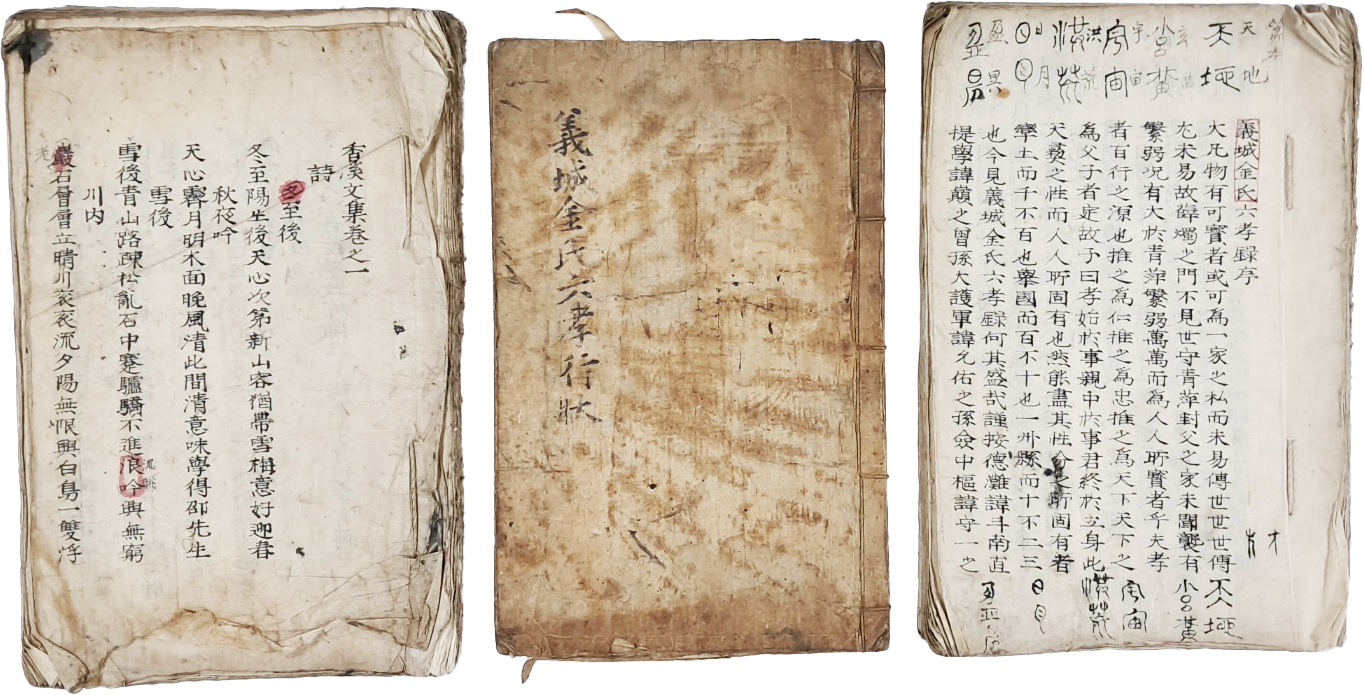 香溪文集卷之一
詩
冬至後
冬至陽生後天心次第新山客猶帶雪梅意好迎春
秋夜吟
天心霽月明水面晩風清此間清意味學得邵先生
雪後
雪後青山路疎松亂石中蹇驢驕不進浪吟興無窮
川内
巖石層層立晴川袞袞流夕陽無恨興白鳥一雙浮
義城金氏六孝行狀
天地
玄黃
宇宙
洪荒
日月
盈昃
義城金氏六孝錄序
大凡物有可寶者或可爲一家之私而未易傳世世世傳
尤未易故薛燭之門不見世守青萍封父之家未聞襲有
繁弱况有大於青萍繁弱萬萬而爲人人所寶者乎夫孝
者百行之源也推之爲仁推之爲忠推之爲天下天下之
爲父子者定故子曰孝始於事親中於事君終於立身此
天彛之性而人人所固有也然能盡其性分之所固有者
率土而千不百也擧國而百不十也一州縣而十不二三
也今見義城金氏六孝錄何其盛哉謹按德灘諱斗南直
提學諱巓之曾孫大護軍諱允佑之孫僉中樞諱守一之